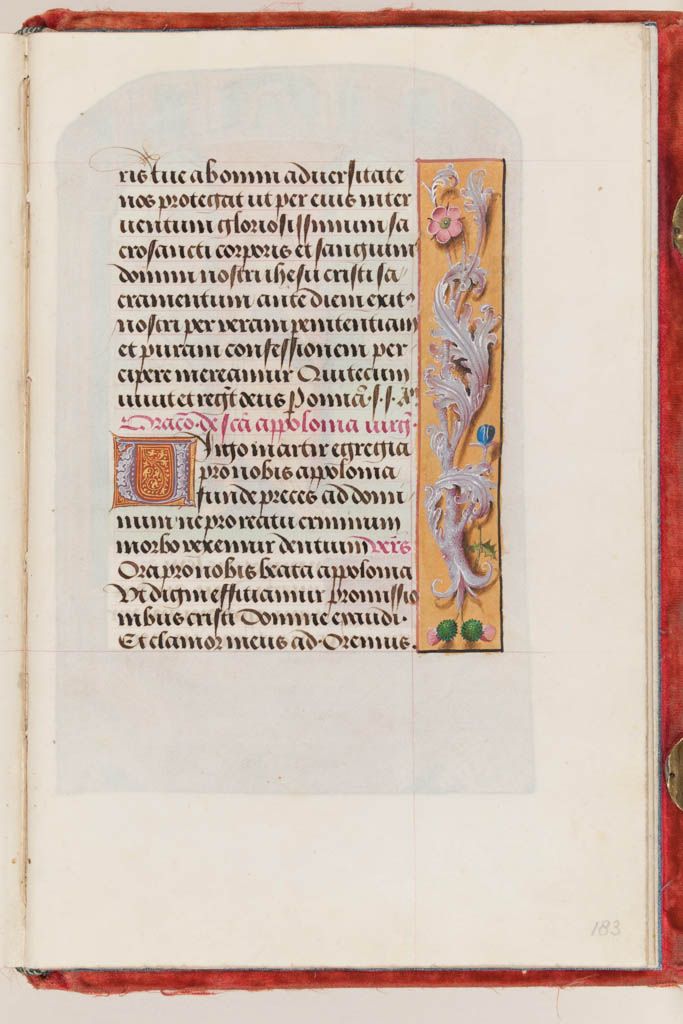 ris tue ab omni aduersitate
nos protegat ut per eius inter
uentum gloriosissimum sa
crosancti corporis et sanguini
domini nostri ihesu cristi sa
cramentum ante diem exit9
nostri per veram penitentiam
et puram confessionem per
cipere mereamur Qui tecum
uiuit et regt deus P omia. s. s. A
Oraco. de scā appolonia uirg.
Uirgo martir egregia
pro nobis appolonia
funde preces ad domi
num ne pro reatu criminum
morbo vexemur dentium vers
Ora pro nobis beata appolonia
Vt digni efficiamur promissio
nibus cristi Domine exaudi.
Et clamor meus ad. Oremus.
183